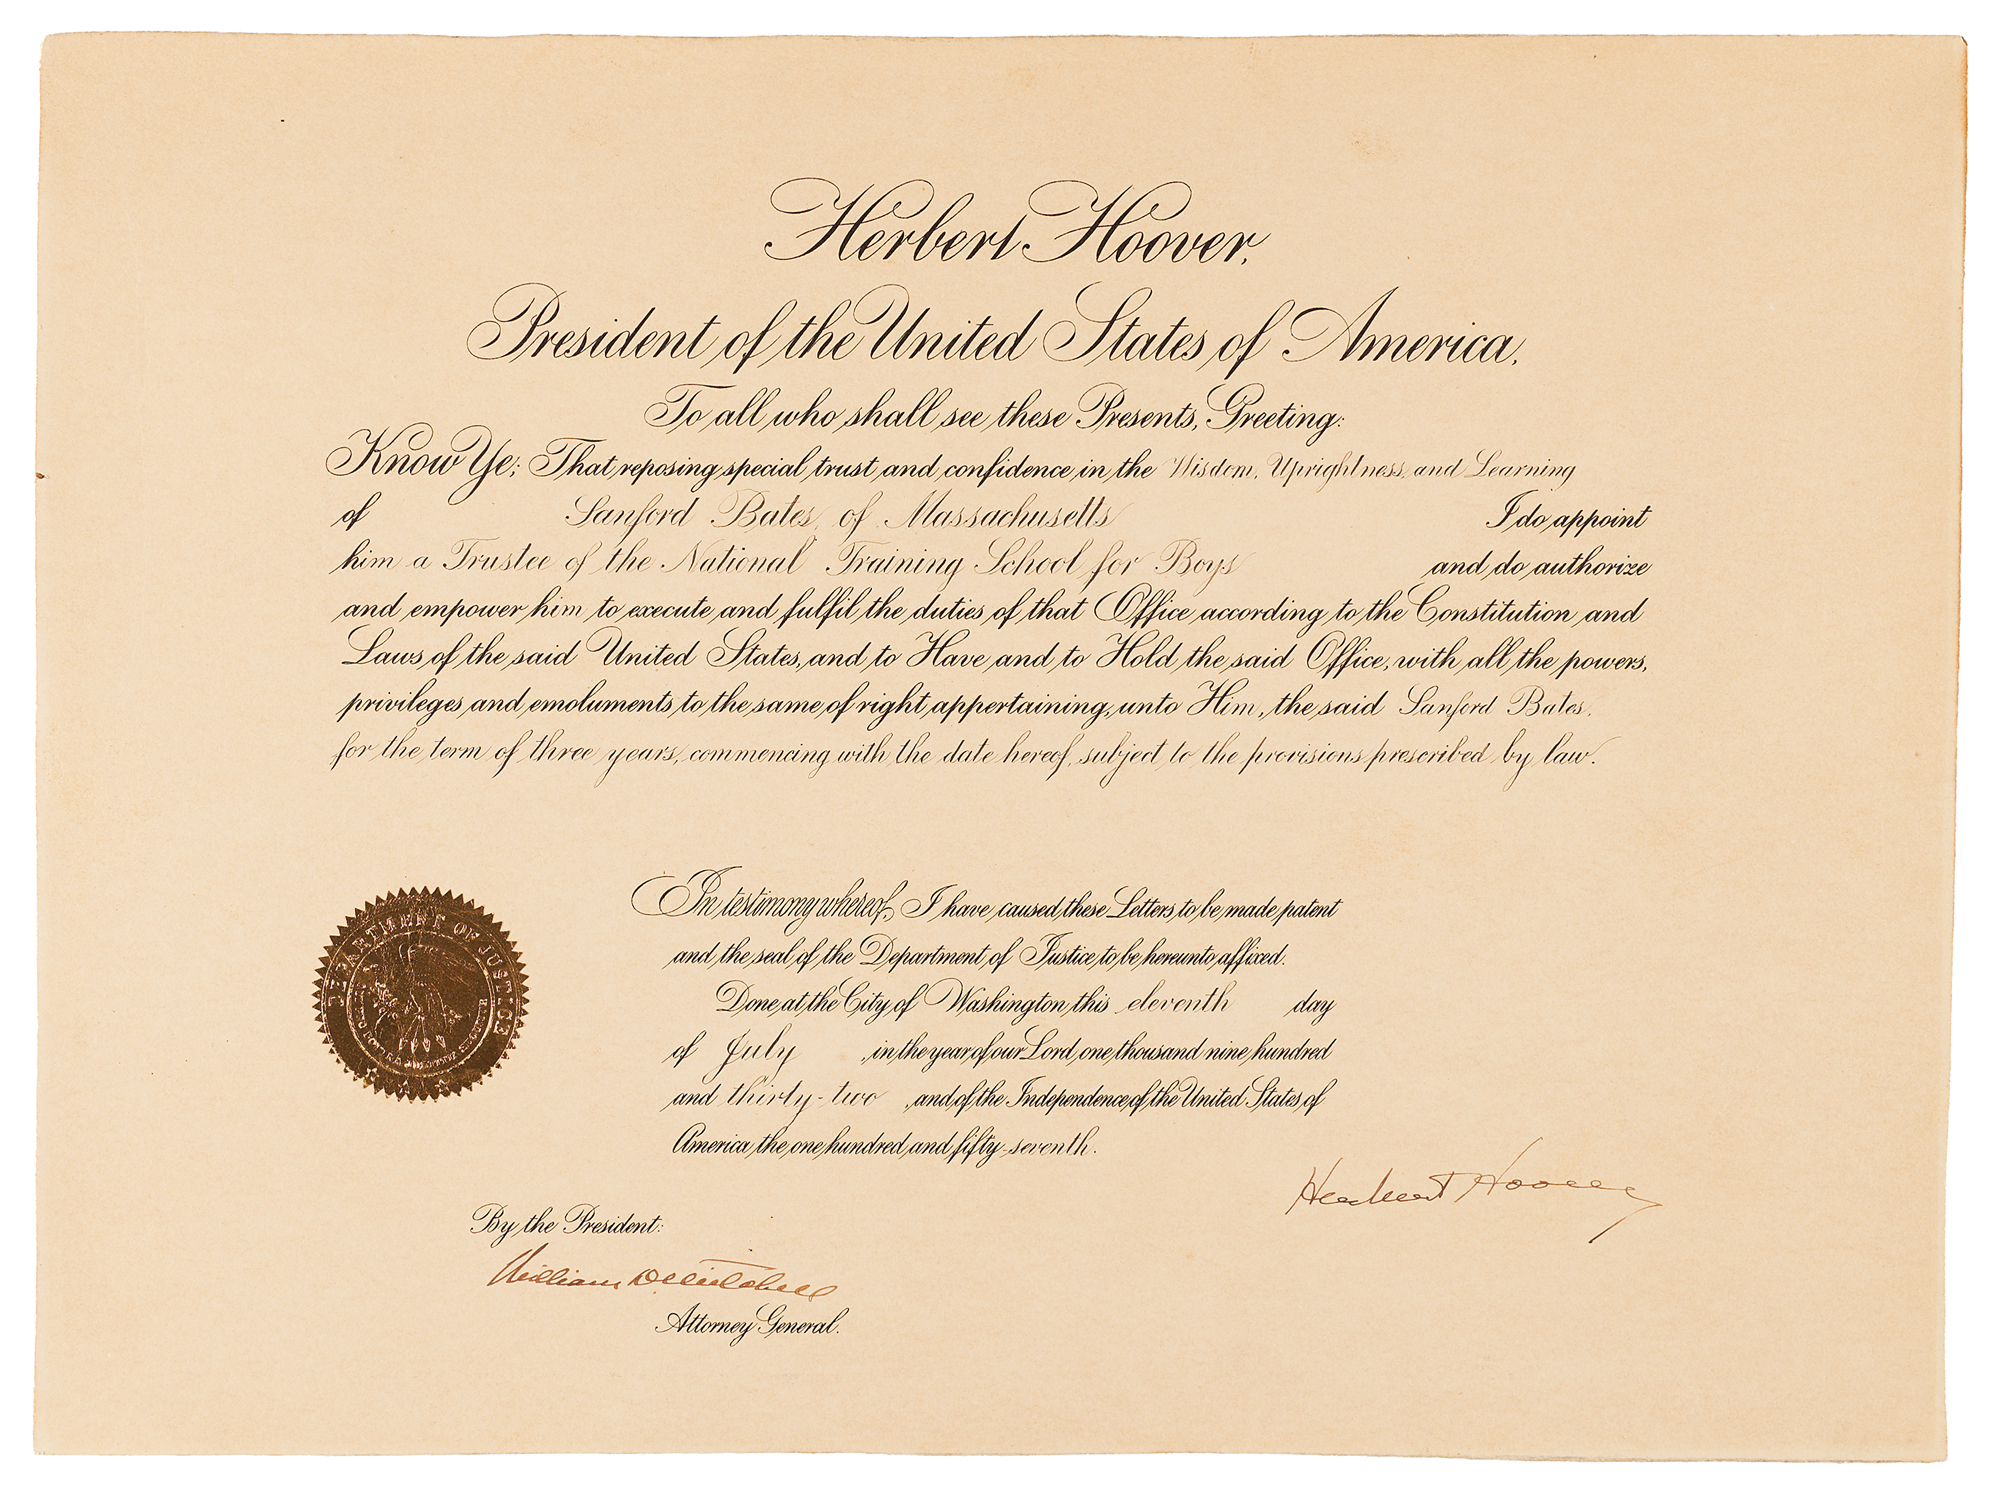 Herbert Hoover,
President of the United States of America,
To all who shall see these Presents, Greeting:
Know Ye; That reposing special trust and confidence in the Wisdom, Uprightness, and Learning
of Sanford Bates, of Massachusetts I do appoint
him a Trustee of the National Training School for Boys and do authorize
and empower him to execute and fulfil the duties of that Office according to the Constitution and
Laws of the said United States, and to Have and to Hold the said Office, with all the powers,
privileges and emoluments to the same of right appertaining, unto Him, the said Sanford Bates,
for the term of three years, commencing with the date hereof, subject to the provisions prescribed by law.
In testimony whereof, I have caused these Letters to be made patent
and the seal of the Department of Justice to be hereunto affixed.
Done at the City of Washington this eleventh day
of July, in the year of our Lord one thousand nine hundred
and thirty-two, and of the Independence of the United States of
America the one hundred and fifty-seventh.
DEPARTMENT OF JUSTICE
Herbert Hoover
By the President:
William D. Mitchell
Attorney General.